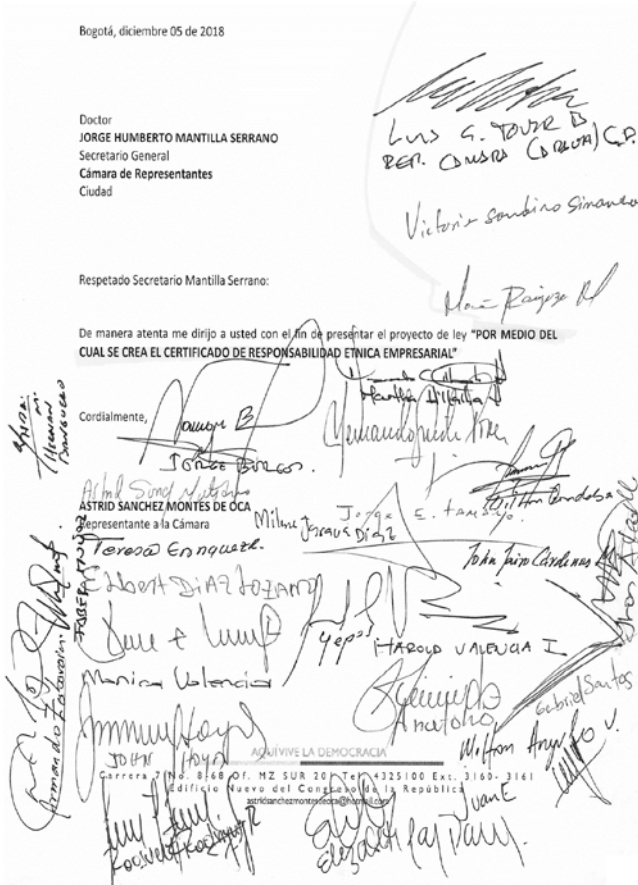 Bogotá, diciembre 05 de 2018
Doctor
JORGE HUMBERTO MANTILLA SERRANO
Secretario General
Cámara de Representantes
Ciudad
LUIS G. TOVAR B
REP. CAMARA
Victoria Sandino Simanca
Respetado Secretario Mantilla Serrano:
De manera atenta me dirijo a usted con el fin de presentar el proyecto de ley "POR MEDIO DEL
CUAL SE CREA EL CERTIFICADO DE RESPONSABILIDAD ETNICA EMPRESARIAL"
Martha Villalba
HERNAN
BANGUERO
Cordialmente,
JORGE BURGOS.
ASTRID SANCHEZ MONTES DE OCA
Representante a la Cámara
Milene Jarava Diaz
Jorge E. Tamayo.
Wilton Cordoba
FABER MUÑOZ
Teresa Enriquez.
John Jairo Cárdenas M.
Elbert DIAZ LOZANO
Yepes
HAROLD VALENCIA I
Monica Valencia
Anatolio
Gabriel Santos
Armando Zabarain
JOHN HOYOS
Milton Angulo V.
AQUÍVIVE LA DEMOCRACIA
Carrera 7 No. 8-68 Of. MZ SUR 20 Tel 4325100 Ext. 3160- 3161
Edificio Nuevo del Congreso de la República
astridsanchezmontesdeoca@hotmail.com
Juan E
Elizabeth Jay-Pang